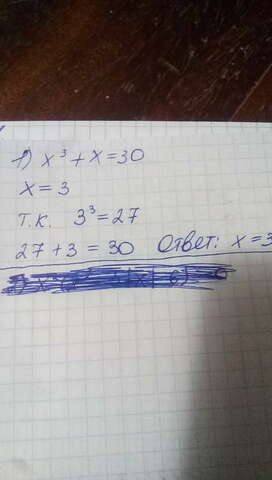 1) x³ + x = 30
x = 3
т.к. 3³ = 27
27 + 3 = 30 Ответ: x = 3